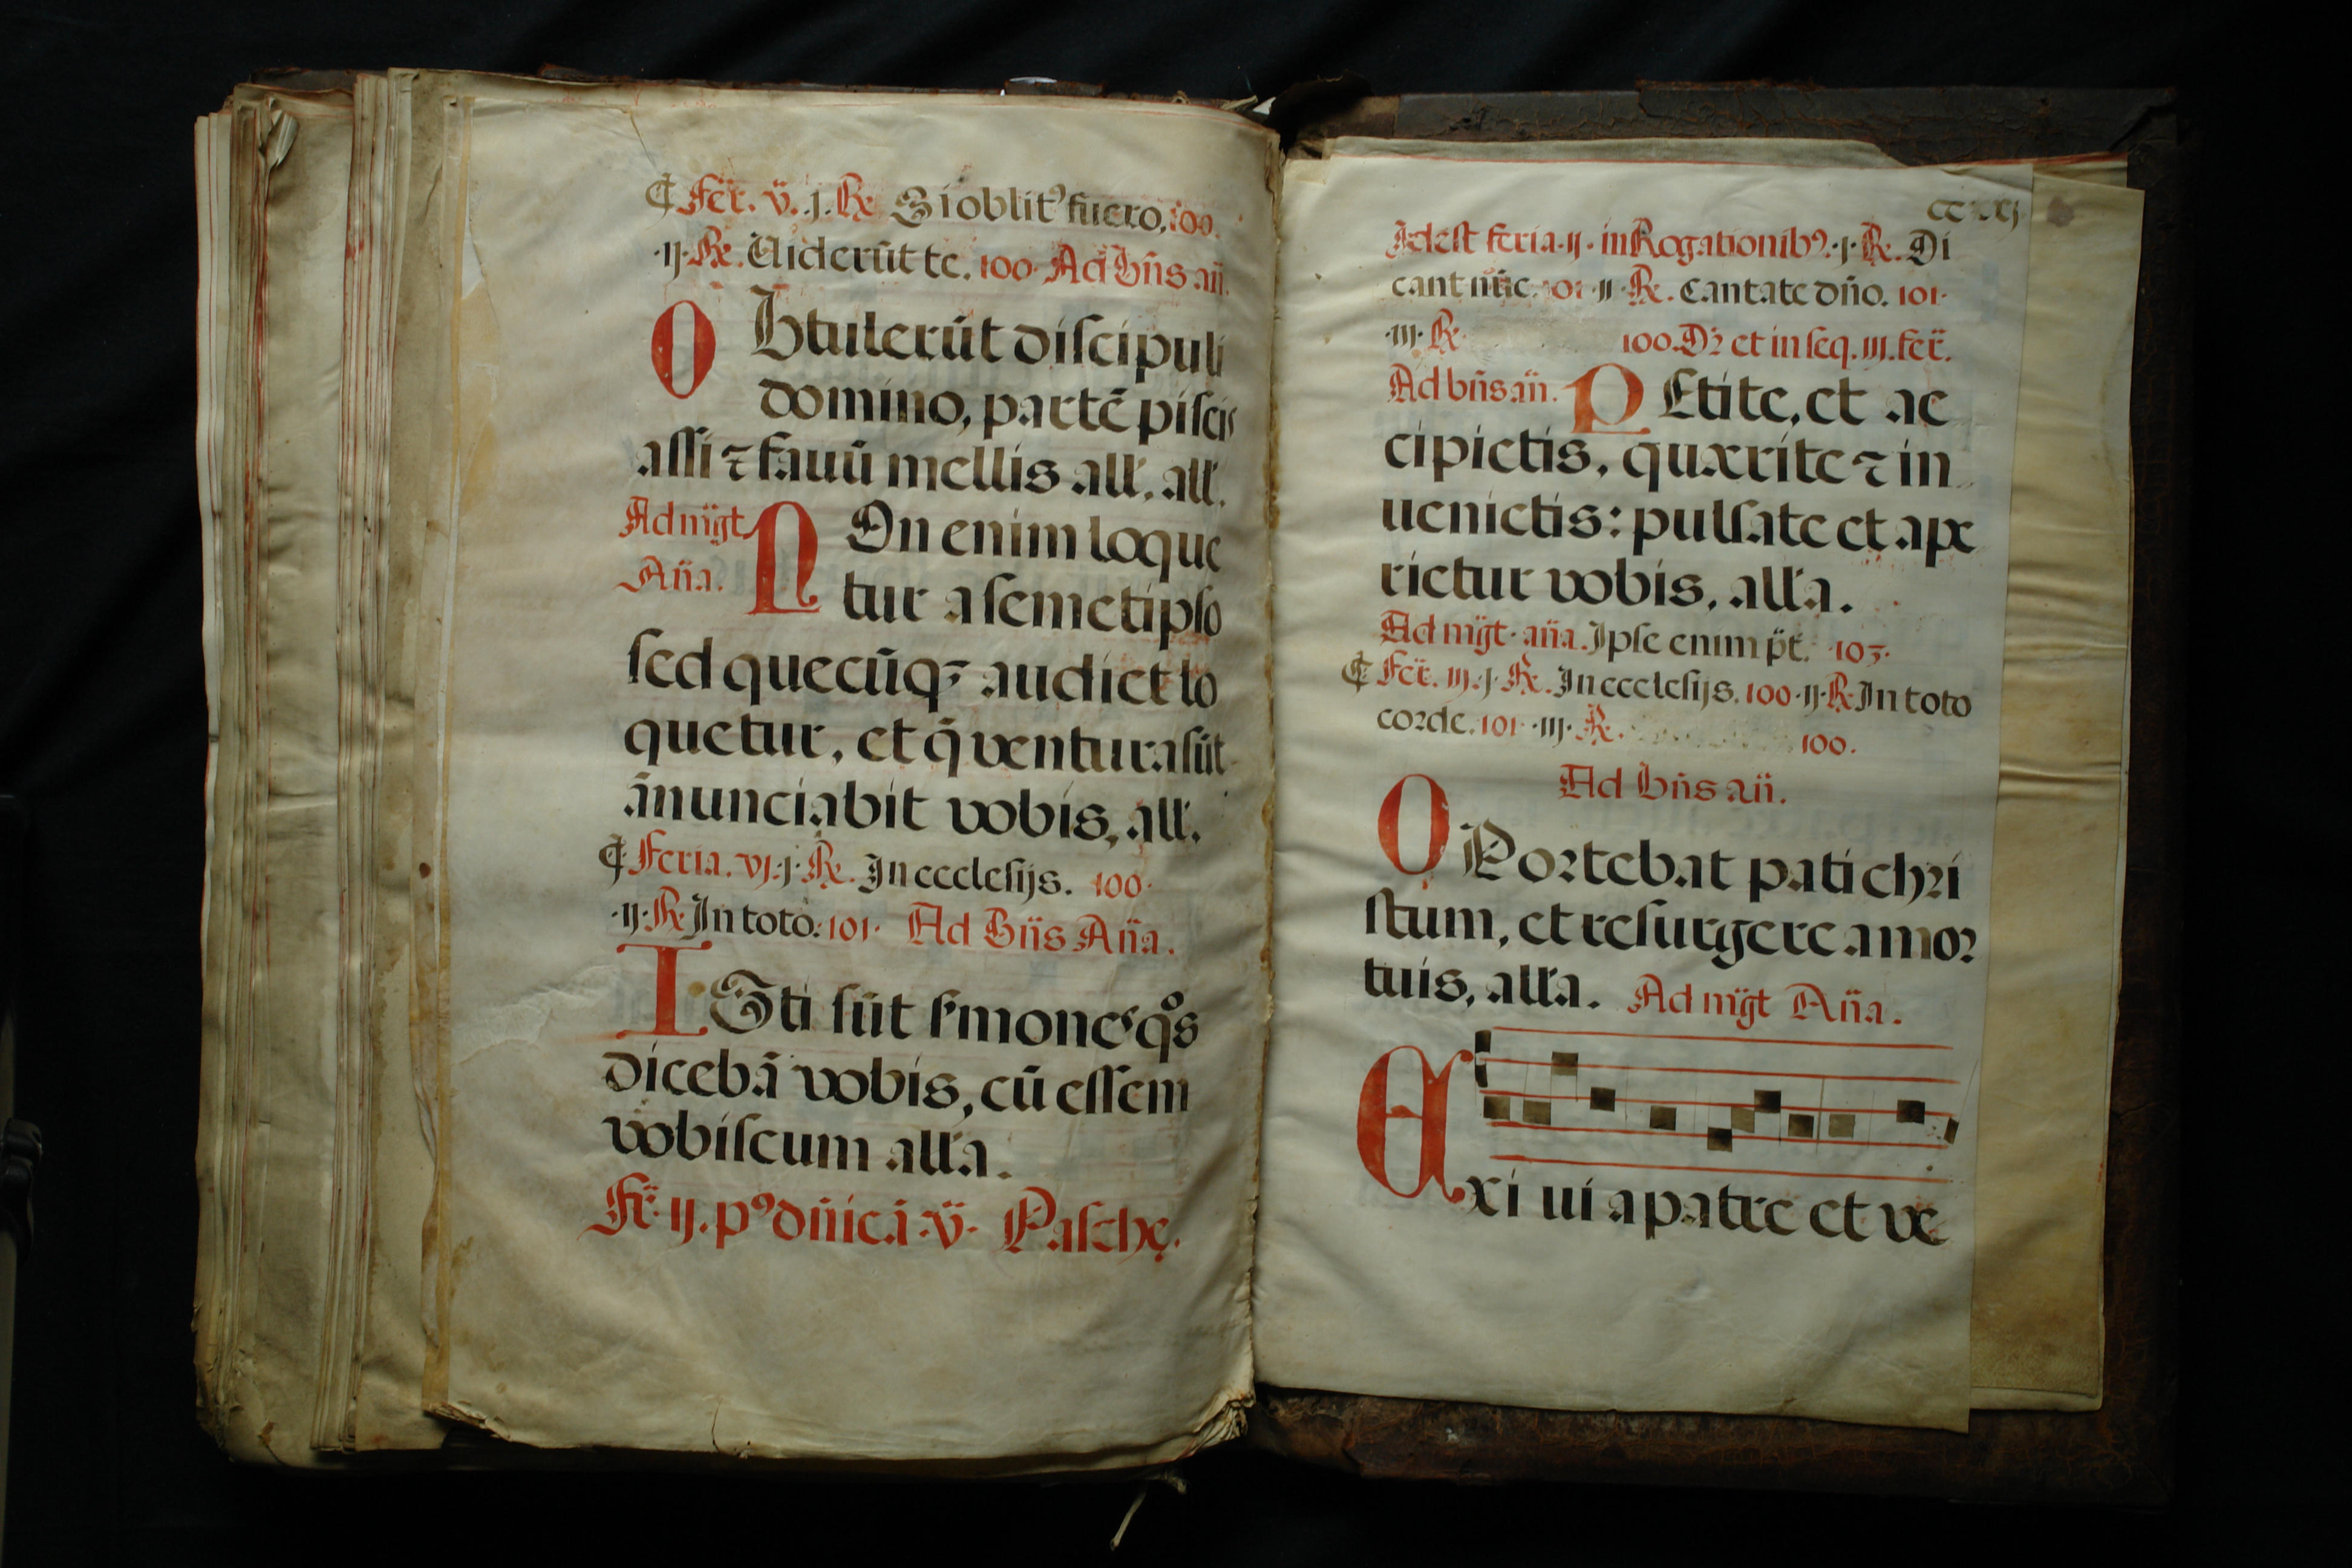 ¶ Fer̄. v̄. j. ℟. Si oblit⁹ fuero, 100.
·ij· ℟. Uiderūt te. 100. Ad bn̄s añ.
O Btulerūt discipuli
domino, partē piscis
assi ⁊ fauū mellis all'. all'.
Ad mg̃t
Añа. N On enim loque
tur a semetipso
sed quecūq; audiet lo
quetur, et q̄ ventura sūt
ānunciabit vobis, all'.
¶ Feria. vj. j. ℟. In ecclesijs. 100.
·ij· ℟. In toto. 101. Ad Bn̄s Añа.
I Sti sūt s'mones qºs
dicebā vobis, cū essem
vobiscum all'a.
Fr̄. ij. p⁹ dn̄icā. v̄. Paschę.
Idest feria ·ij· in Rogationib⁹. ·j· ℟. Di
cant nūc. 101 ·ij· ℟. Cantate dn̄o. 101·
·iij· ℟. 100. Dꝛ et in seq. iij. fer̄.
Ad bn̄s añ. P Etite, et ac
cipietis, quærite ⁊ in
uenietis: pulsate et ape
rietur vobis, all'a.
Ad mg̃t. añа. Ipse enim p̄t. 103.
¶ Fer̄. iij. j. ℟. In ecclesijs. 100 ·ij· ℟. In toto
corde. 101 ·iij· ℟. 100.
Ad bn̄s añ.
O Poꝛtebat pati chꝛi
stum, et resurgere a moꝛ
tuis, all'a. Ad mg̃t Añа.
E xi ui a patre et ve